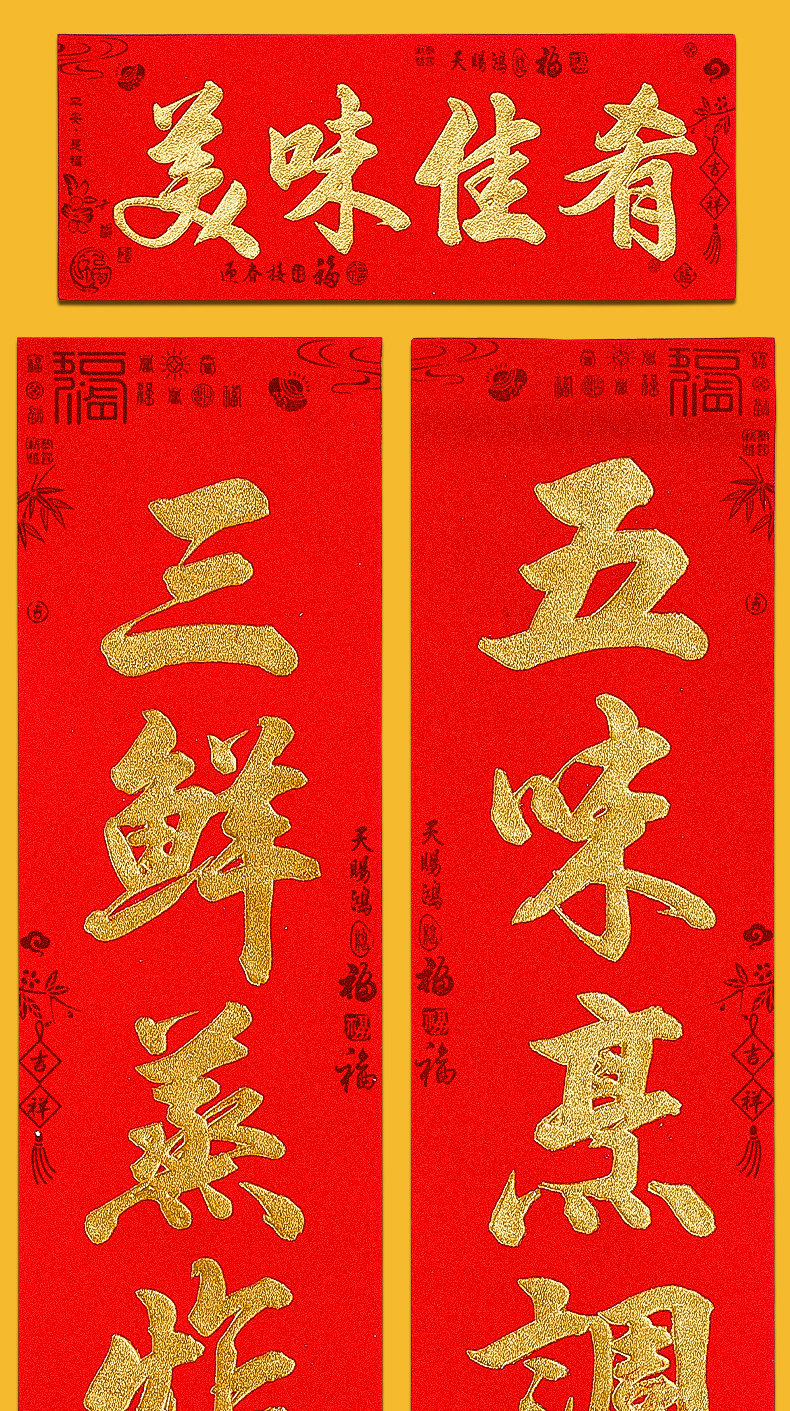 美味佳肴
天賜鴻福
福
平安·是福
吉祥
迎春接福
五味烹調
三鮮蒸炸
福
福
天賜鴻福
福
福
天賜鴻福
福
福
吉祥
吉祥